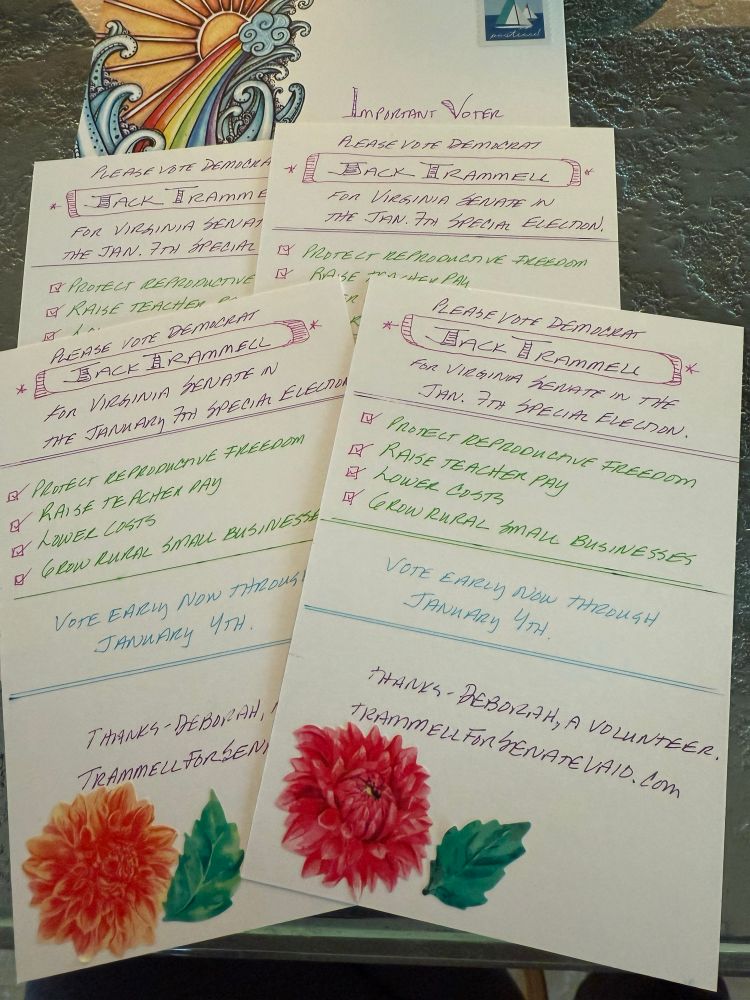 Important Voter
Please Vote Democra
Jack Tramme
for Virginia Senat
the Jan. 7th Special
Protect Reproductive
Raise Teacher
Please Vote Democrat
Jack Trammell
for Virginia Senate in
the Jan. 7th Special Election.
Protect Reproductive Freedom
Raise Teacher Pay
Please Vote Democrat
Jack Trammell
for Virginia Senate in
the January 7th Special Election
Protect Reproductive Freedom
Raise Teacher Pay
Lower Costs
Grow Rural Small Businesse
Vote Early Now Through
January 4th.
Thanks - Deborah,
TrammellForSen
Please Vote Democrat
Jack Trammell
for Virginia Senate in the
Jan. 7th Special Election.
Protect Reproductive Freedom
Raise Teacher Pay
Lower Costs
Grow Rural Small Businesses
Vote Early Now Through
January 4th.
Thanks - Deborah, a volunteer.
TrammellForSenateVA10.com